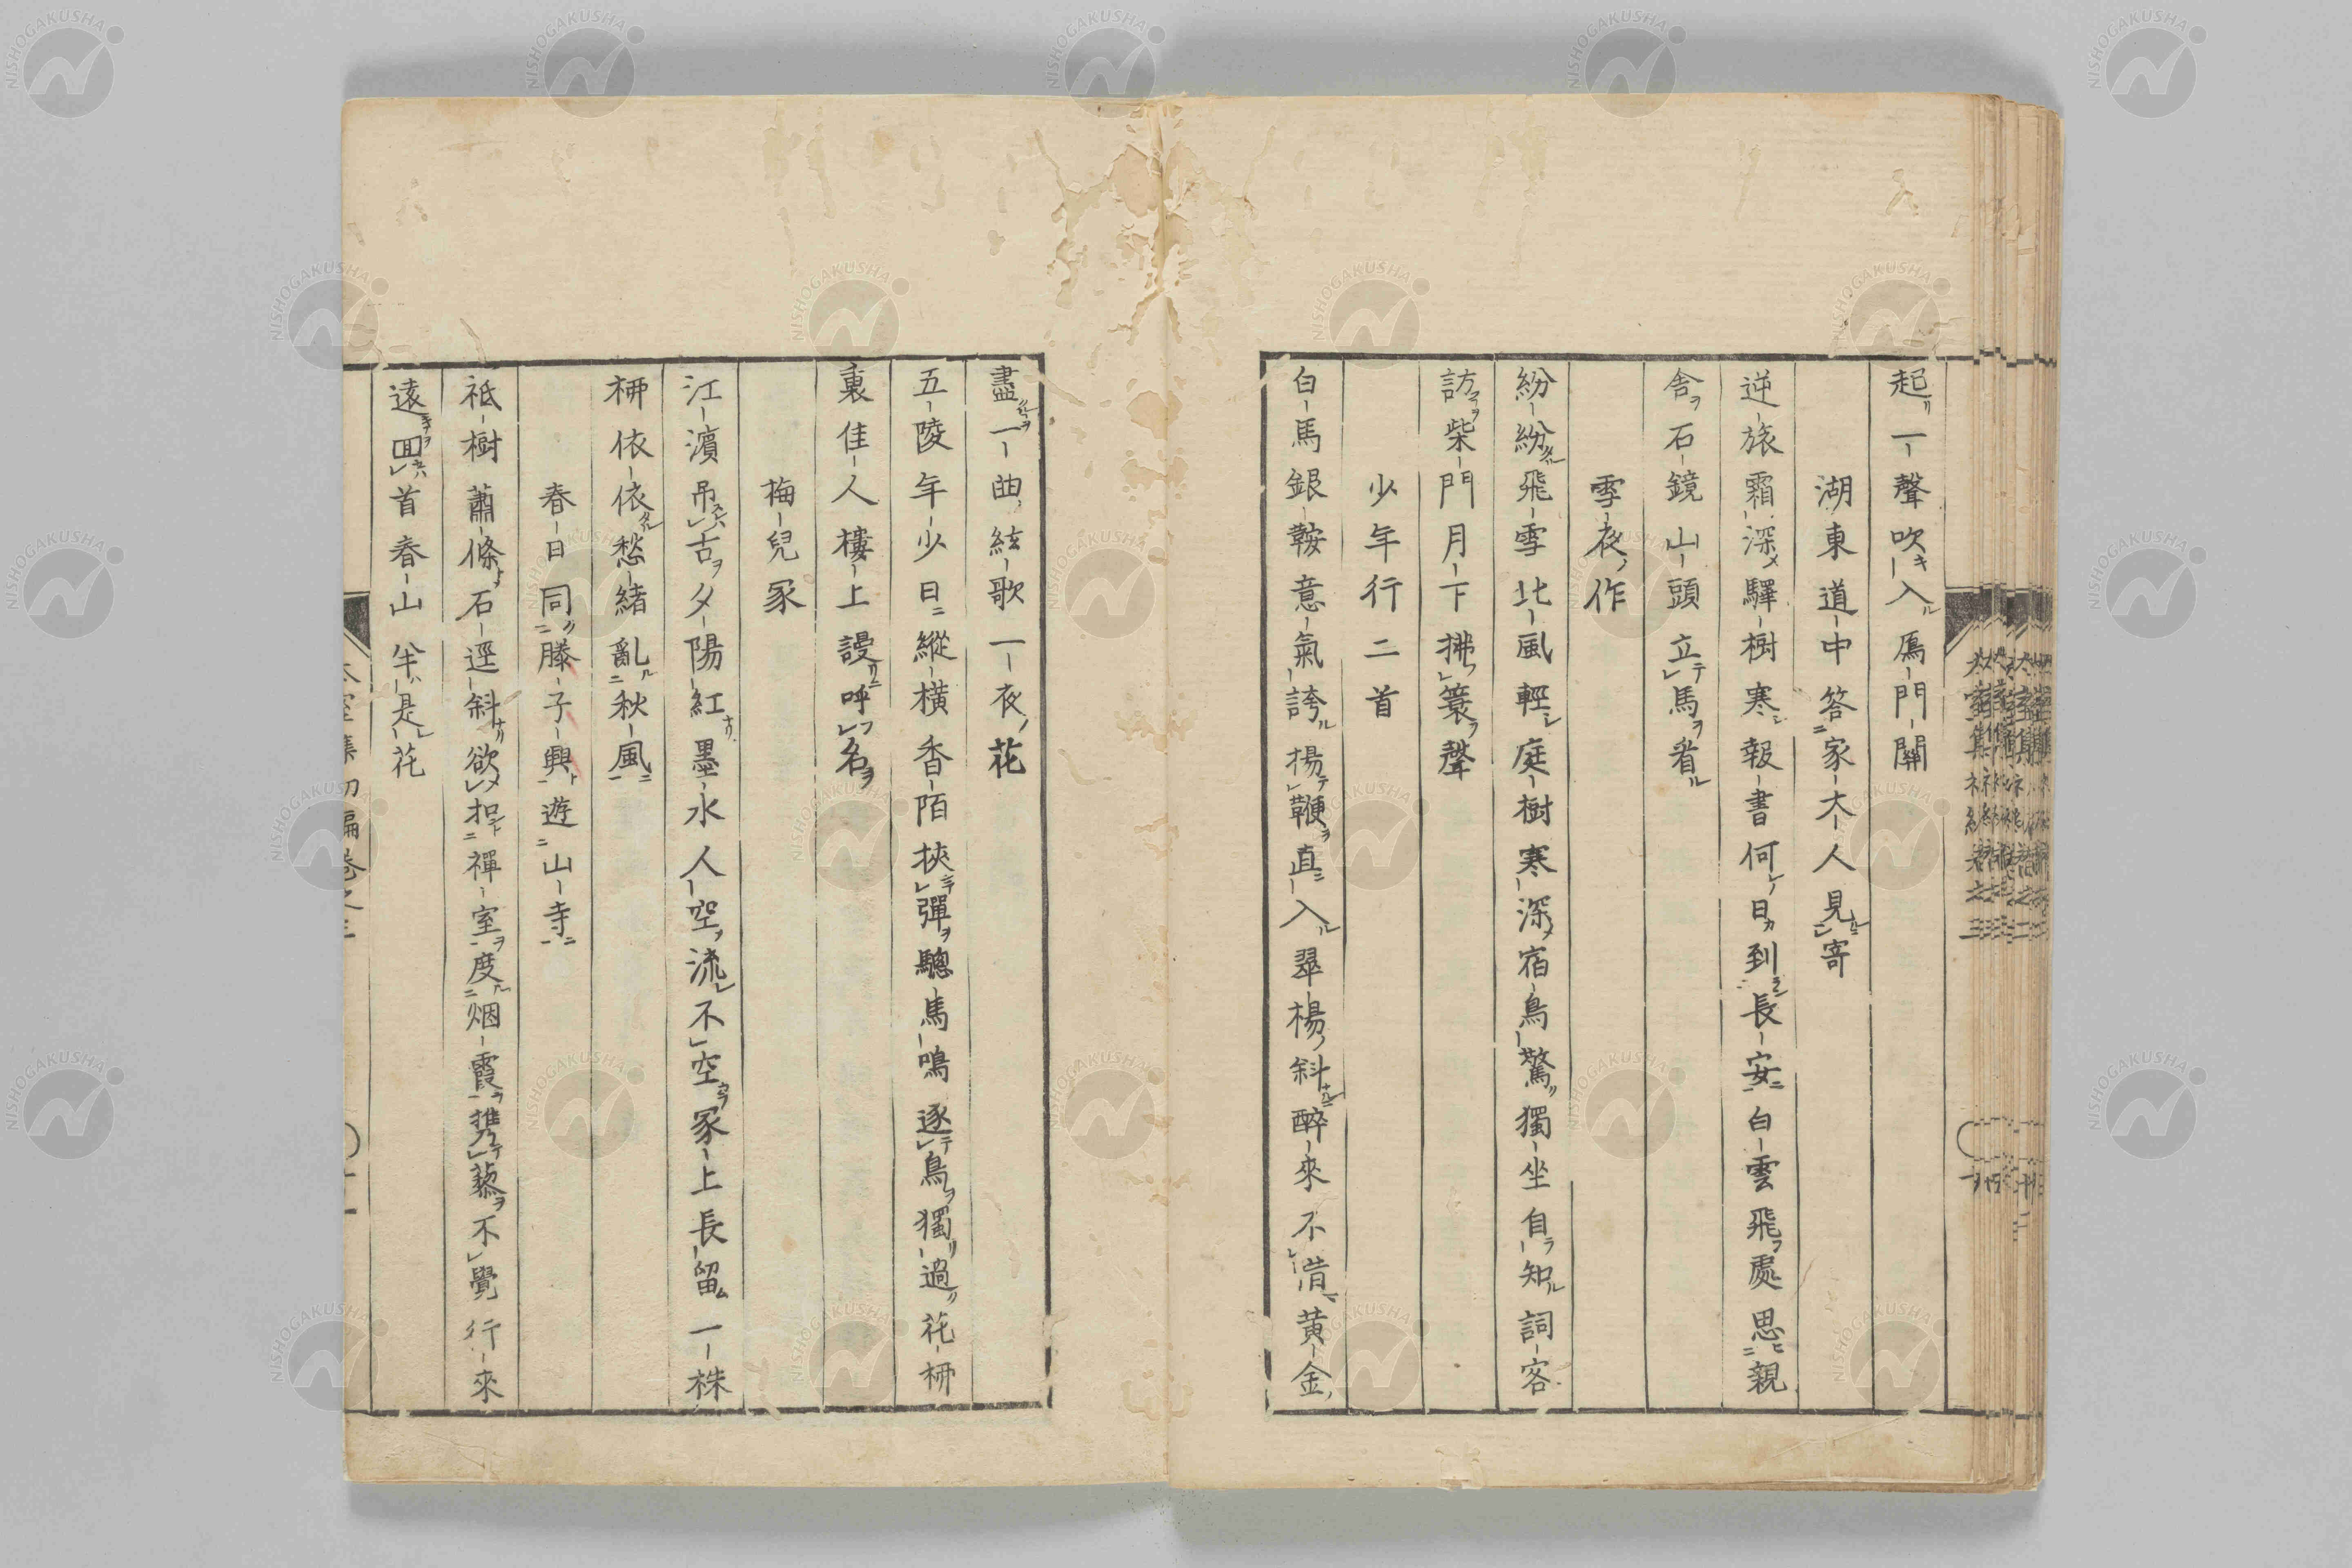 起一聲吹入鴈門關
湖東道中答家大人見寄
逆旅霜深驛樹寒報書何日到長安白雲飛處思親
舎石鏡山頭立馬看
雪夜作
紛紛飛雪北風輕庭樹寒深宿鳥驚獨坐自知詞客
訪柴門月下拂簔聲
少年行二首
白馬銀鞍意氣誇揚鞭直入翠楊斜醉來不惜黄金
盡一曲絃歌一夜花
五陵年少日縱橫香陌挾彈驄馬鳴逐鳥獨過花柳
裏佳人樓上謾呼名
梅兒冢
江濱吊古夕陽紅墨水人空流不空冢上長留一株
柳依依愁緒亂秋風
春日同滕子興遊山寺
祇樹蕭條石逕斜欲扣禪室度烟霞携藜不覺行來
遠回首春山半是花
NISHOGAKUSHA